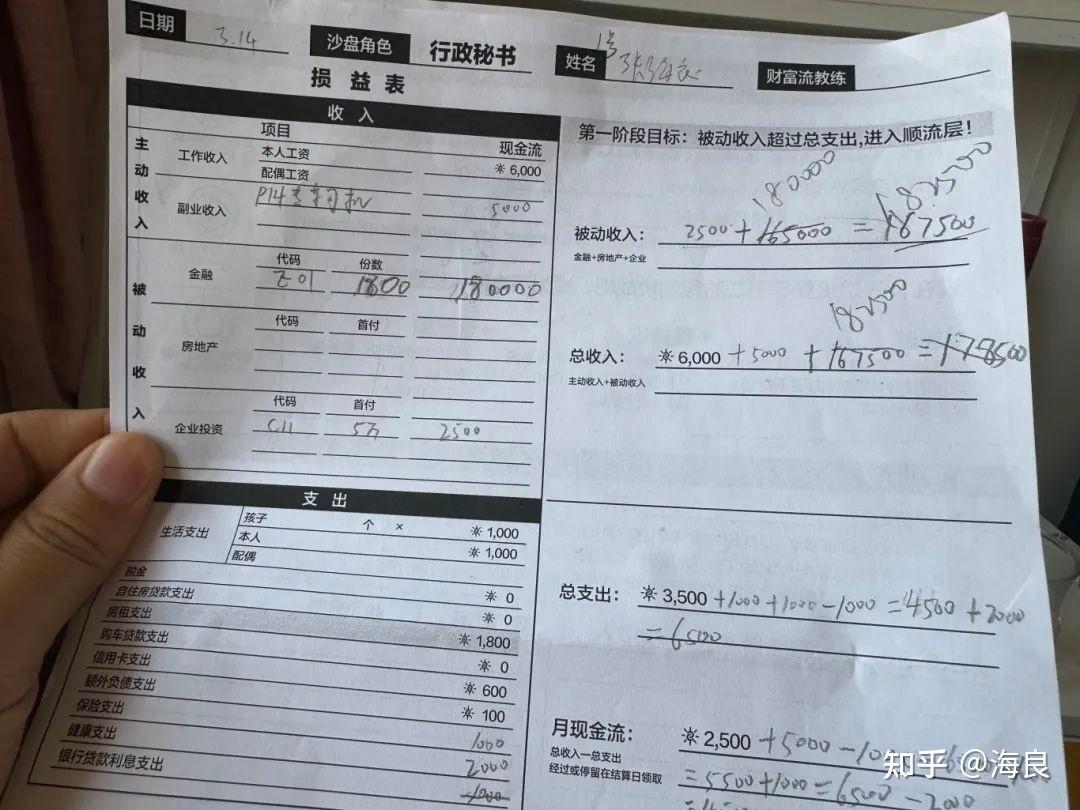 日期 3.14 沙盘角色 行政秘书 姓名 张海良 财富流教练
损益表
收入
项目 现金流
主动收入
工作收入 本人工资 ※ 6,000
配偶工资
副业收入 P14 5000
被动收入
金融 代码 份数
Z01 1800 180000
房地产 代码 首付
企业投资 代码 首付
C11 5万 2500
支出
生活支出 孩子 个 × ※ 1,000
本人 ※ 1,000
配偶
税金 ※ 0
自住房贷款支出 ※ 0
房租支出 ※ 1,800
购车贷款支出 ※ 0
信用卡支出 ※ 600
额外负债支出 ※ 100
保险支出
健康支出 1000
银行贷款利息支出 2000
1000
第一阶段目标：被动收入超过总支出,进入顺流层！
180000 182500
被动收入： 2500 + 165000 = 167500
金融+房地产+企业
182500
总收入： ※ 6,000 + 5000 + 167500 = 178500
主动收入+被动收入
总支出： ※ 3,500 +1000 +1000 -1000 =4500 +2000
= 6500
月现金流： ※ 2,500 +5000 -100
总收入一总支出 = 5500 +1000 = 6500 -2000
经过或停留在结算日领取
知乎 @海良